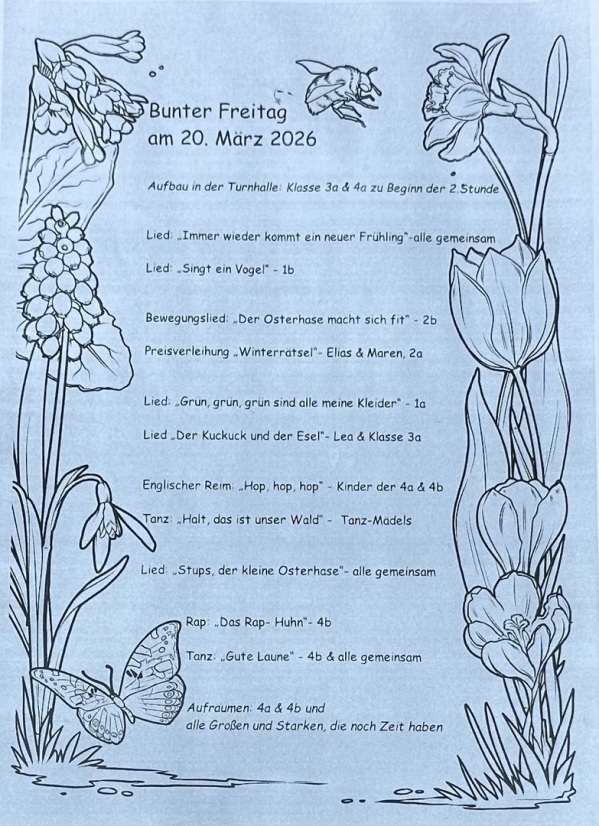 Bunter Freitag
am 20. März 2026
Aufbau in der Turnhalle: Klasse 3a & 4a zu Beginn der 2.Stunde
Lied: „Immer wieder kommt ein neuer Frühling“-alle gemeinsam
Lied: „Singt ein Vogel“ - 1b
Bewegungslied: „Der Osterhase macht sich fit“ - 2b
Preisverleihung „Winterrätsel“- Elias & Maren, 2a
Lied: „Grün, grün, grün sind alle meine Kleider“ - 1a
Lied „Der Kuckuck und der Esel“- Lea & Klasse 3a
Englischer Reim: „Hop, hop, hop“ - Kinder der 4a & 4b
Tanz: „Halt, das ist unser Wald“ - Tanz-Mädels
Lied: „Stups, der kleine Osterhase“- alle gemeinsam
Rap: „Das Rap- Huhn“- 4b
Tanz: „Gute Laune“ - 4b & alle gemeinsam
Aufräumen: 4a & 4b und
alle Großen und Starken, die noch Zeit haben